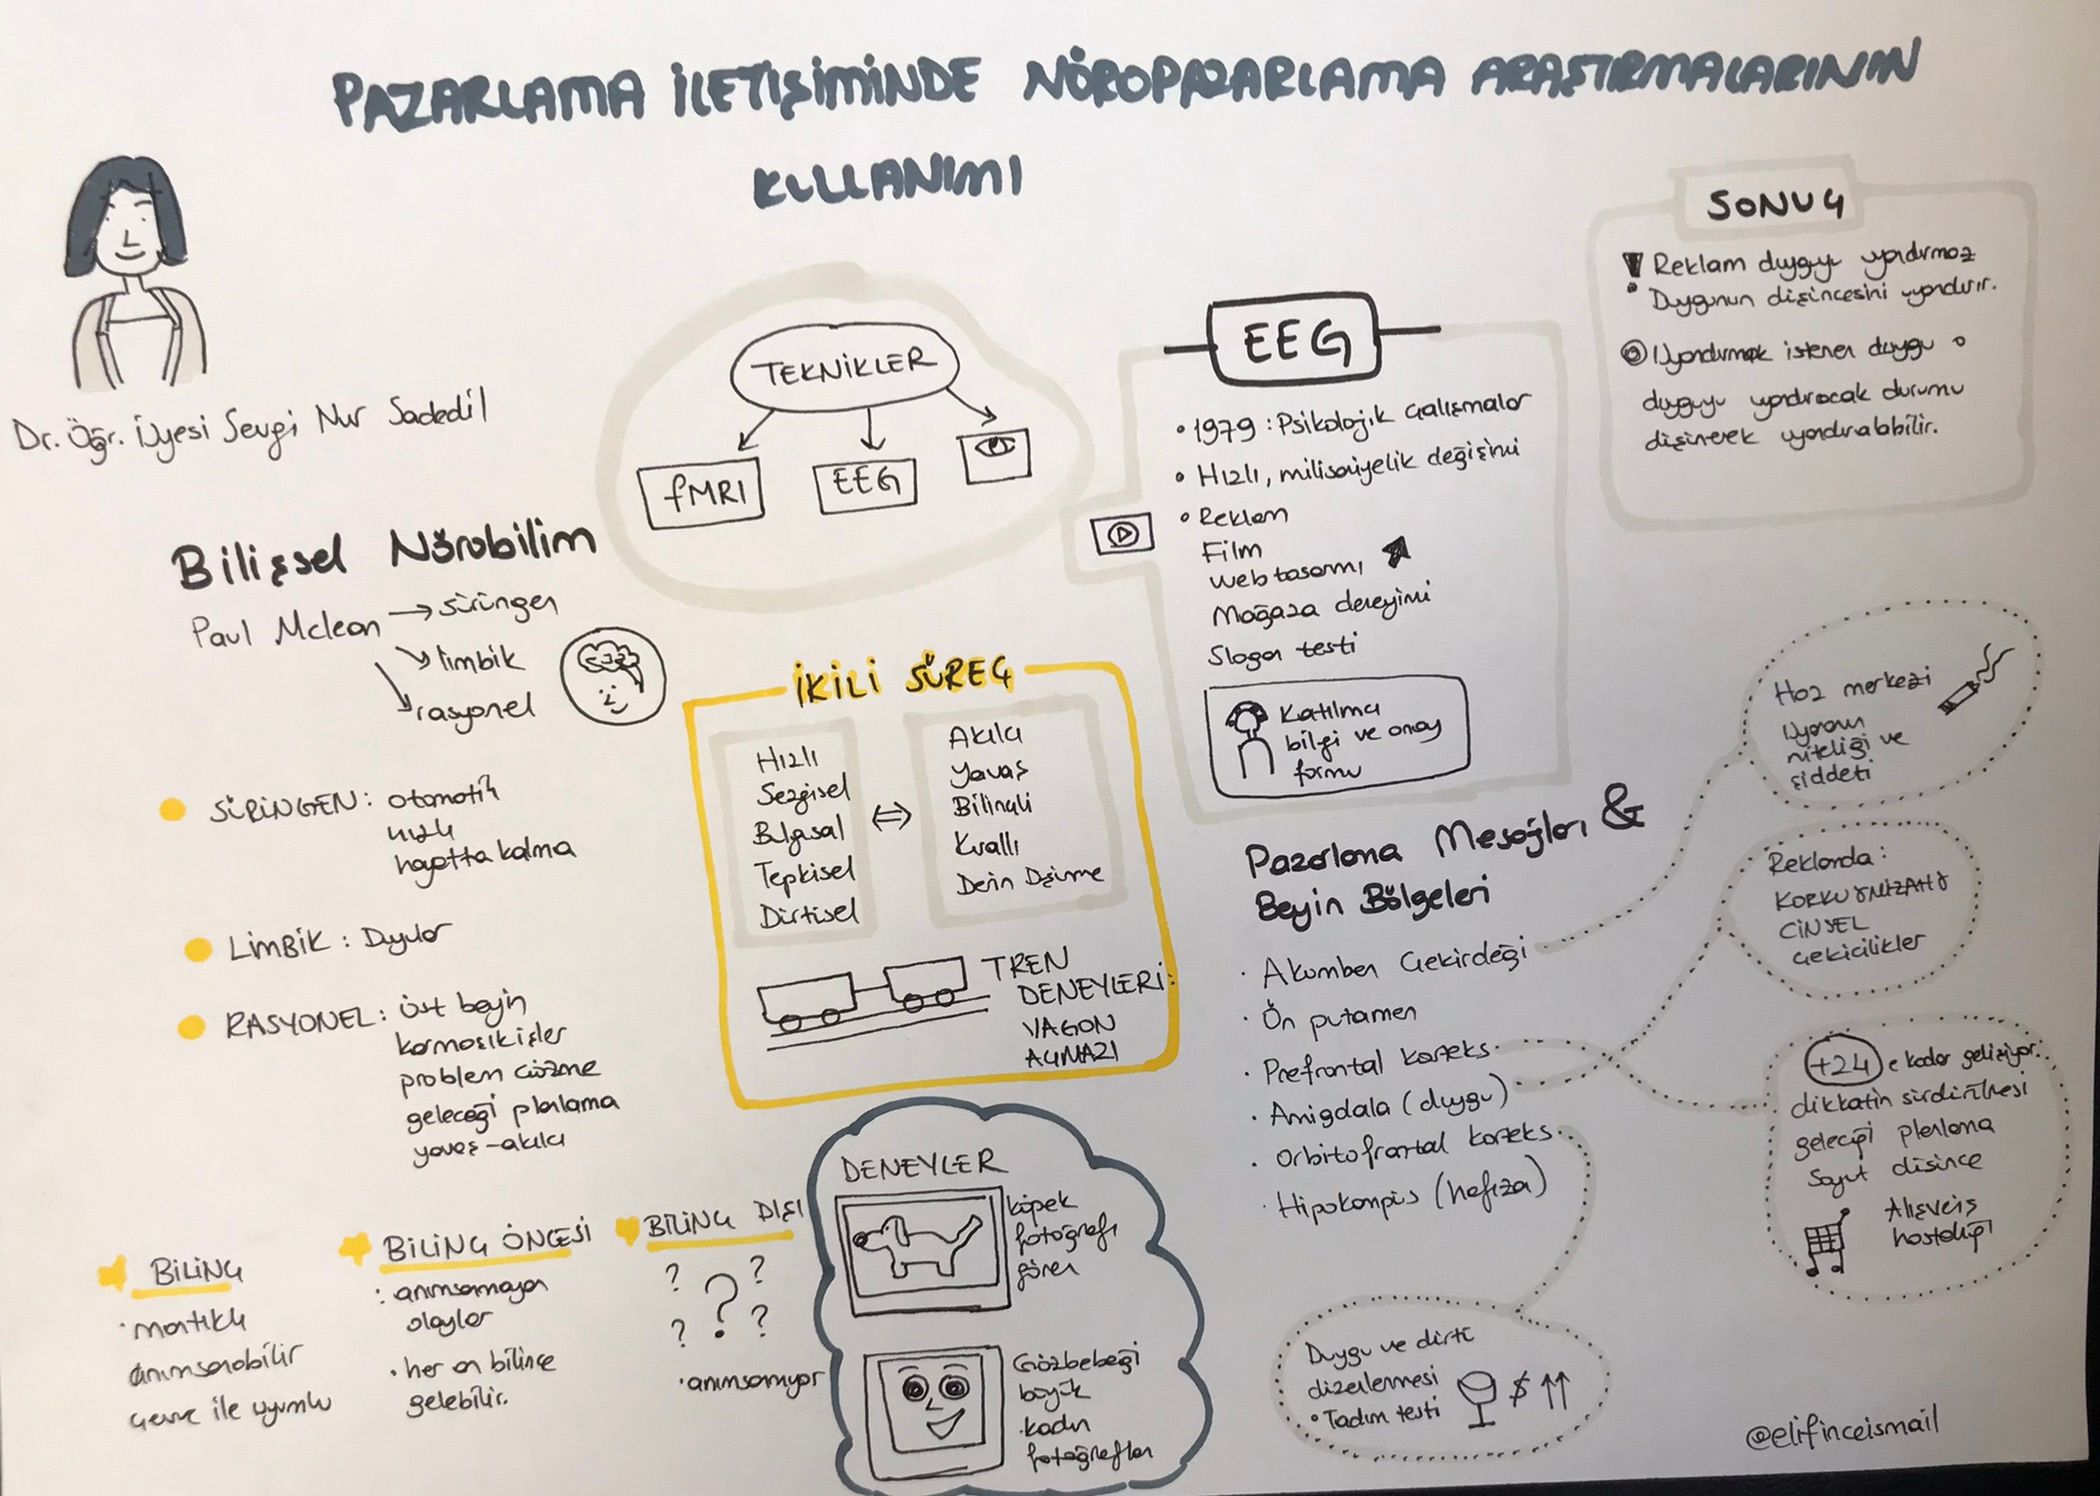 PAZARLAMA İLETİŞİMİNDE NÖROPAZARLAMA ARAŞTIRMALARININ
KULLANIMI
Dr. Öğr. Üyesi Sevgi Nur Sadedil
Bilişsel Nörobilim
Paul Mclean → sürüngen
limbik
rasyonel
SÜRÜNGEN: otomatik
hızlı
hayatta kalma
LİMBİK: Duyular
RASYONEL: üst beyin
karmaşık işler
problem çözme
geleceği planlama
yavaş-akılcı
BİLİNÇ
mantıklı
anımsanabilir
çevre ile uyumlu
BİLİNÇ ÖNCESİ
: anımsamayan
olaylar
• her an bilince
gelebilir.
BİLİNÇ DIŞI
? ? ?
? ?
• anımsamıyor
TEKNİKLER
fMRI
EEG
İKİLİ SÜREÇ
Hızlı
Sezgisel
Bilgisal
Tepkisel
Dürtüsel
⇔
Akılcı
Yavaş
Bilinçli
Kurallı
Derin Düşünme
TREN
DENEYLERİ:
VAGON
AÇMAZI
DENEYLER
köpek
fotoğrafı
gören
Gözbebeği
büyük
kadın
fotoğrafları
EEG
• 1979: Psikolojik çalışmalar
• Hızlı, milisaniyelik değişimi
• Reklam
Film
Web tasarımı
Mağaza deneyimi
Slogan testi
Katılımcı
bilgi ve onay
formu
Pazarlama Mesajları &
Beyin Bölgeleri
· Akumben Çekirdeği
· Ön putamen
· Prefrontal korteks
· Amigdala (duygu)
· Orbitofrontal korteks
· Hipokampüs (hafıza)
SONUÇ
Reklam duyguyu uyandırmaz
Duygunun düşüncesini uyandırır.
Uyandırmak istenen duygu o
duyguyu uyandıracak durumu
düşünerek uyandırılabilir.
Haz merkezi
Uyaranın
niteliği ve
şiddeti
Reklamda:
KORKU MİZAH
CİNSEL
çekicilikler
+24 e kadar gelişiyor.
dikkatin sürdürülmesi
geleceği planlama
Soyut düşünce
Alışveriş
hastalığı
Duygu ve dürtü
düzenlenmesi
• Tadım testi $ ↑↑
@elifinceismail